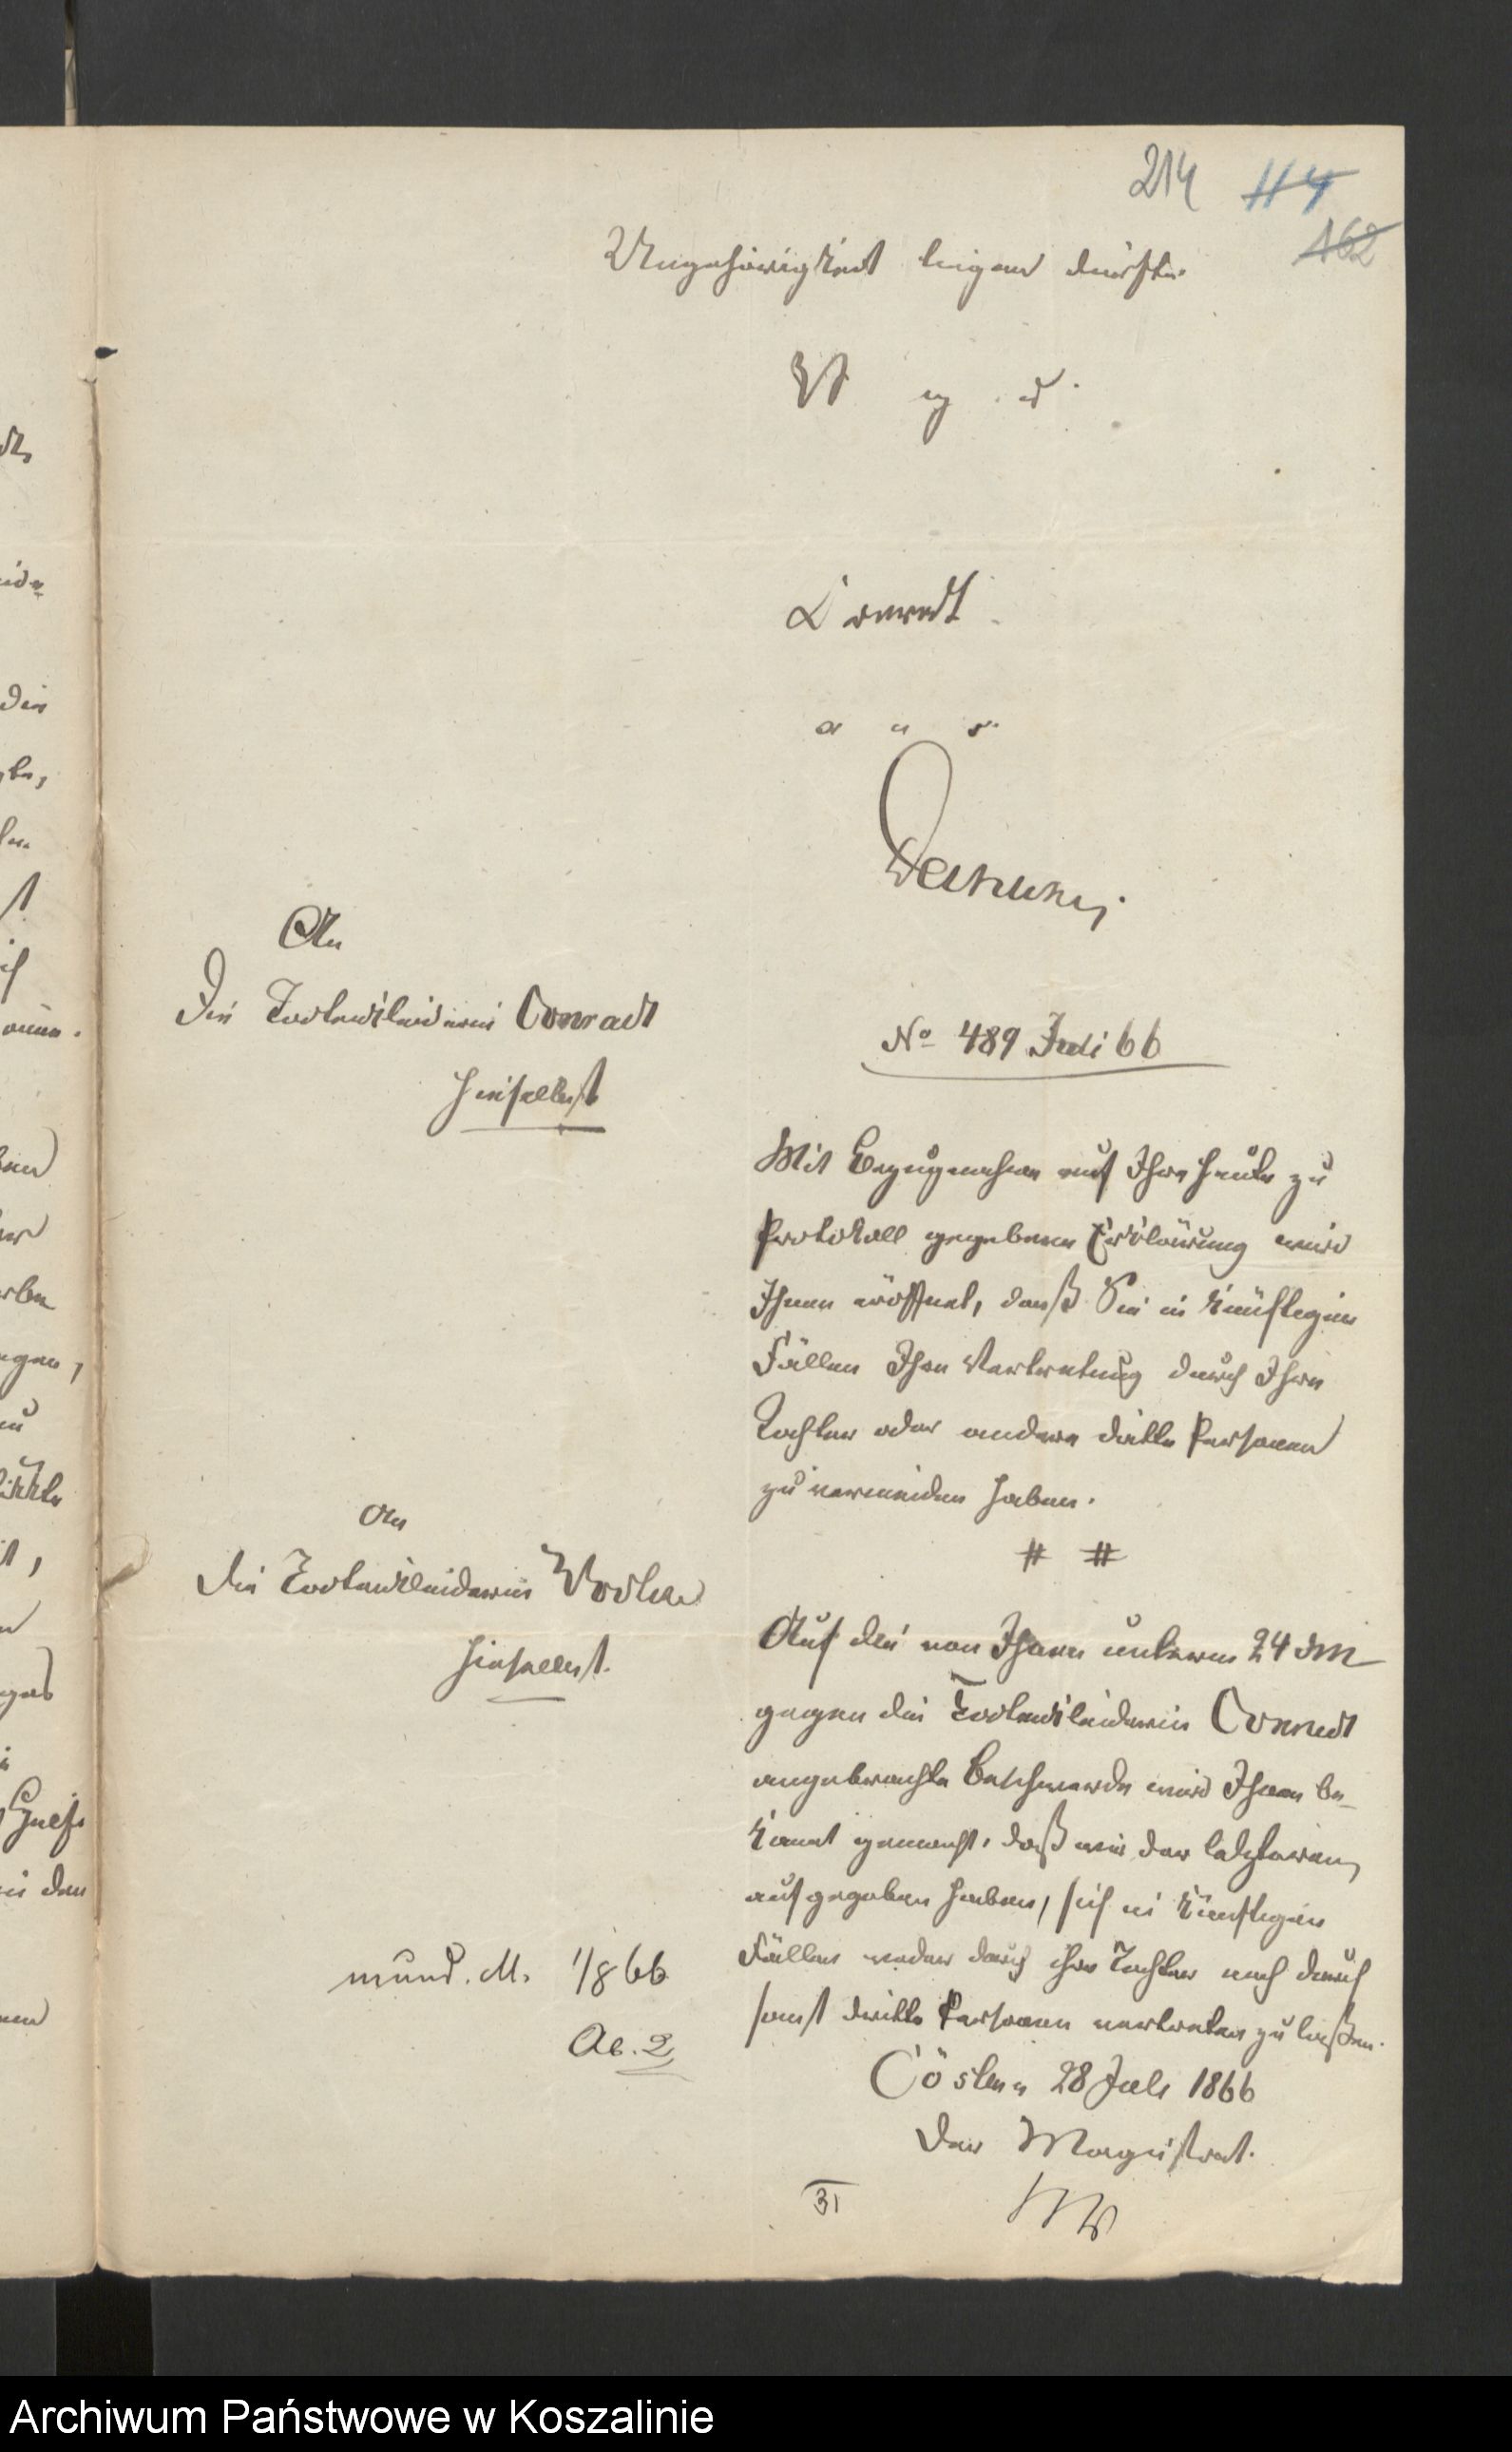 214 114
162
Ungehörigkeit liegen dürfte.
V. g. u.
Conradt.
a. u. s.
An
die Todtenkleiderin Conradt
hieselbst
No 489 Juli 66
Mit Bezugnahme auf Ihre heute zu
Protokoll gegebene Erklärung wird
Ihnen eröffnet, daß Sie in künftigen
Fällen Ihre Vertretung durch Ihre
Tochter oder andere dritte Personen
zu vermeiden haben.
# #
An
die Todtenkleiderin
hieselbst.
Auf die von Ihnen unterm 24 dM
gegen die Todtenkleiderin Conradt
angebrachte Beschwerde wird Ihnen be-
kannt gemacht, daß wir der letzteren
aufgegeben haben, sich in künftigen
Fällen weder durch ihre Tochter noch durch
sonst dritte Personen vertreten zu laßen.
Cöslin 28 Juli 1866
Der Magistrat.
mund. M. 1/8 66
Ab. 2
31
Archiwum Państwowe w Koszalinie